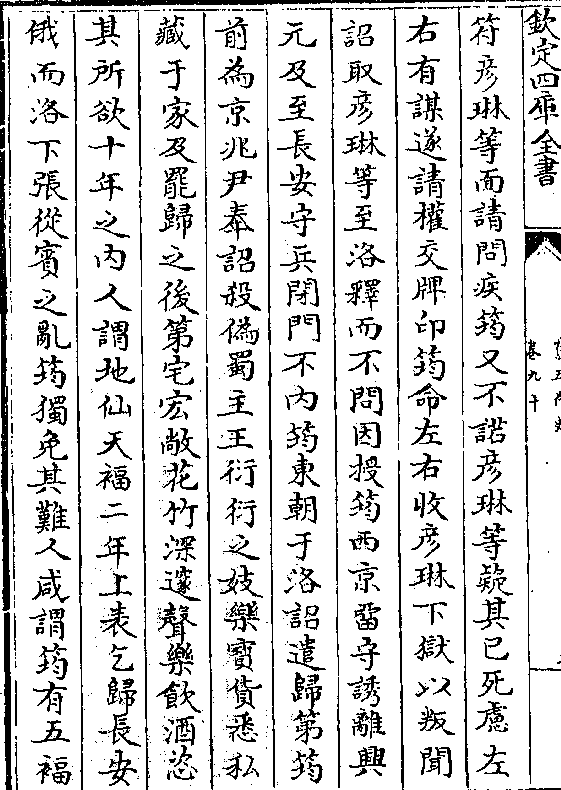 欽定四庫全書
卷九十
符彥琳等面請問疾筠又不諾彥琳等疑其已死慮左
右有謀遂請權交牌印筠命左右收彥琳下獄以叛聞
詔取彥琳等至洛釋而不問因授筠西京畱守誘離興
元及至長安守兵閉門不内筠東朝于洛詔遣歸第筠
前為京兆尹奉詔殺偽蜀主王衍衍之妓樂寶貨悉私
藏于家及罷歸之後第宅宏敞花竹深邃聲樂飲酒恣
其所欲十年之内人謂地仙天福二年上表乞歸長安
俄而洛下張從賓之亂筠獨免其難人咸謂筠有五福